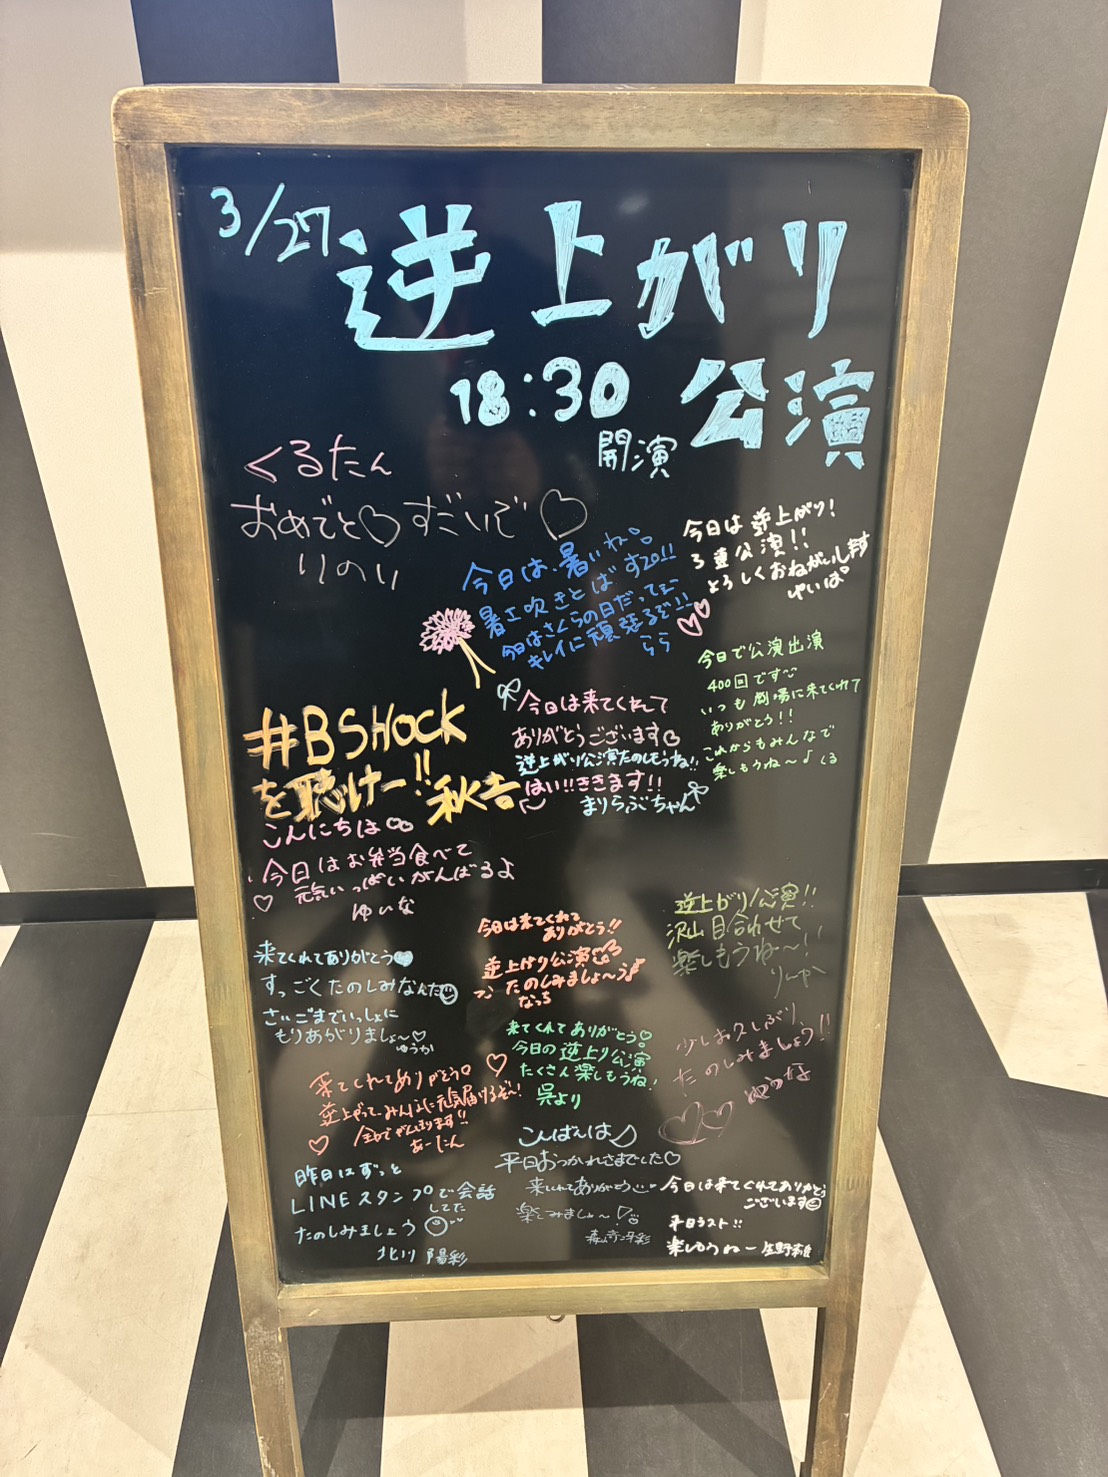 3/27
逆上がり
公演
18:30
開演
くるたん
おめでと♡すごいで♡
りのり
今日は逆上がり!
3重公演!!
よろしくおねがいします
ゆいぱ
今日は、暑いね。
暑さ吹きとばす
今日はさくらの日だってさ
キレイに頑張るぞ!!
らら
今日で公演出演
400回です
いつも劇場に来てくれて
ありがとう!!
これからもみんなで
楽しもうね〜♪くる
今日は来てくれて
ありがとうございます
逆上がり公演たのしもうね!!
はい!!ききます!!
まりらぶちゃん
#BSHOCK
を聴けー!!
秋吉
こんにちは
今日はお弁当食べて
元気いっぱいがんばるよ
♡
ゆいな
来てくれてありがとう
すっごくたのしみなんだ
さいごまでいっしょに
もりあがりましょ〜♡
ゆうか
今日は来てくれて
ありがとう!!
逆上がり公演
たのしみましょ〜う♪
なっち
逆上がり公演!!
沢山目合わせて
楽しもうね〜!!
りんか
来てくれてありがとう♡
今日の逆上り公演
たくさん楽しもうね!
呉より
少しお久しぶり、
たのしみましょう!!
ゆうな
来てくれてありがとう
逆上がってみんなに元気届けるぞ〜!
全力でがんばります!!
あーしたん
昨日はずっと
LINEスタンプで会話
してた
たのしみましょう
北川 陽彩
こんばんは
平日おつかれさまでした♡
来てくれてありがとう
楽しみましょ〜!
森山さ彩
今日は来てくれてありがとう
ございます
平日ラスト!!
楽しもうねー 生野莉奈